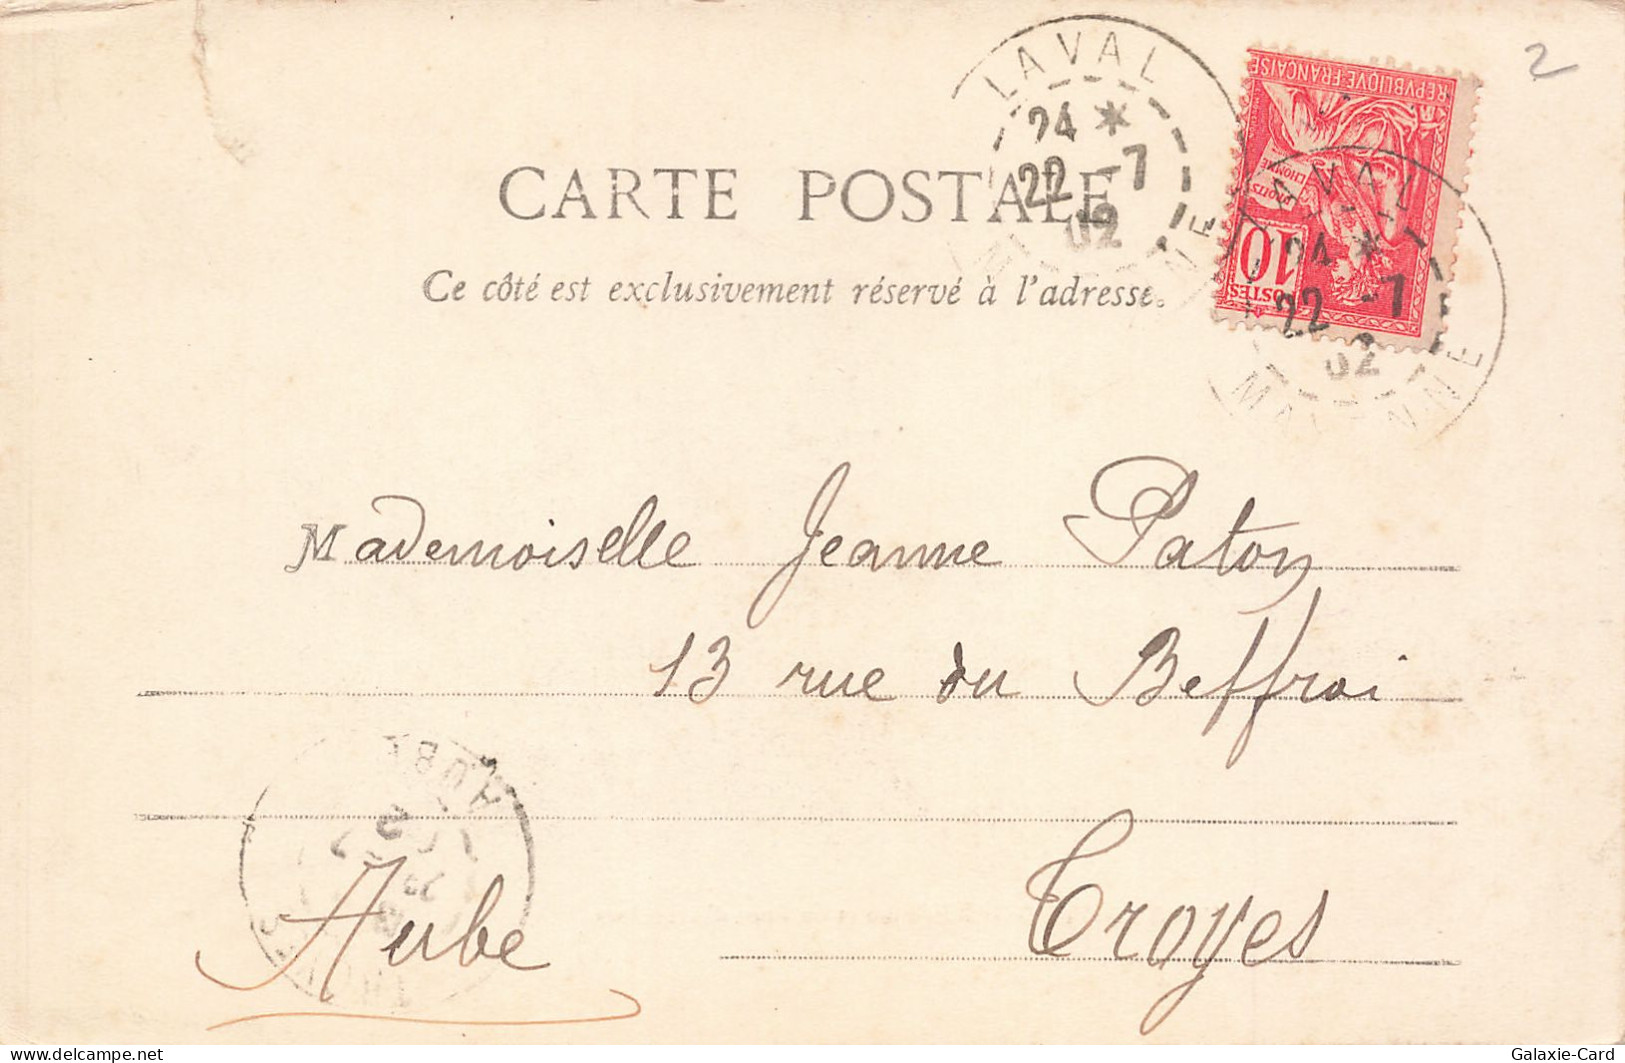 2
LAVAL
24 *
22 -7
02
MAYENNE
REPVBLIQVE FRANÇAISE
DROITS
L'HOMME
10
POSTES
LAVAL
24 *
22 -7
02
MAYENNE
CARTE POSTALE
Ce côté est exclusivement réservé à l'adresse.
Mademoiselle Jeanne Paton
13 rue du Beffroi
Troyes
Aube
AUBE
delcampe.net
Galaxie-Card